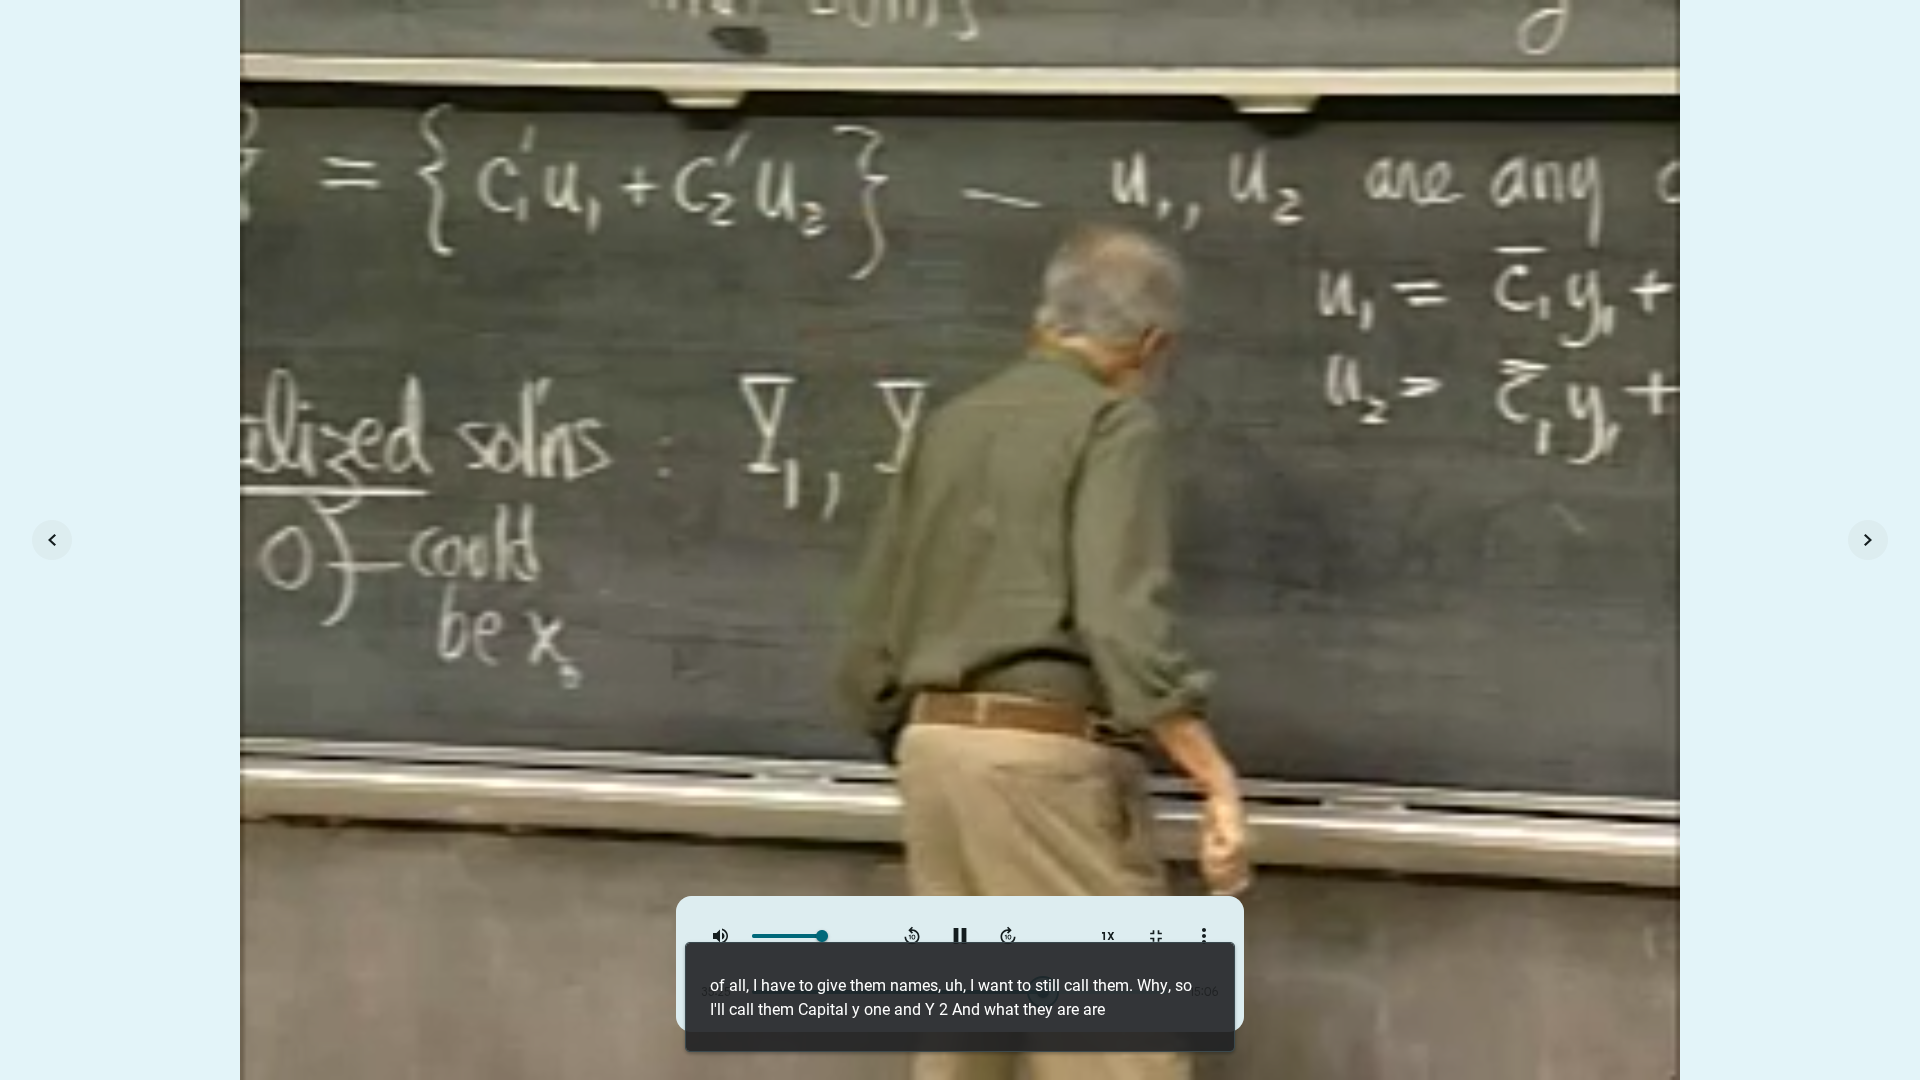 = {c₁'u₁ + c₂'u₂} — u₁, u₂ are any
u₁ = c̄₁y₁ +
u₂ = c̿₁y₁ +
alized sol'ns : Y₁, Y
0) — could
be x₀
1X
of all, I have to give them names, uh, I want to still call them. Why, so
I'll call them Capital y one and Y 2 And what they are are